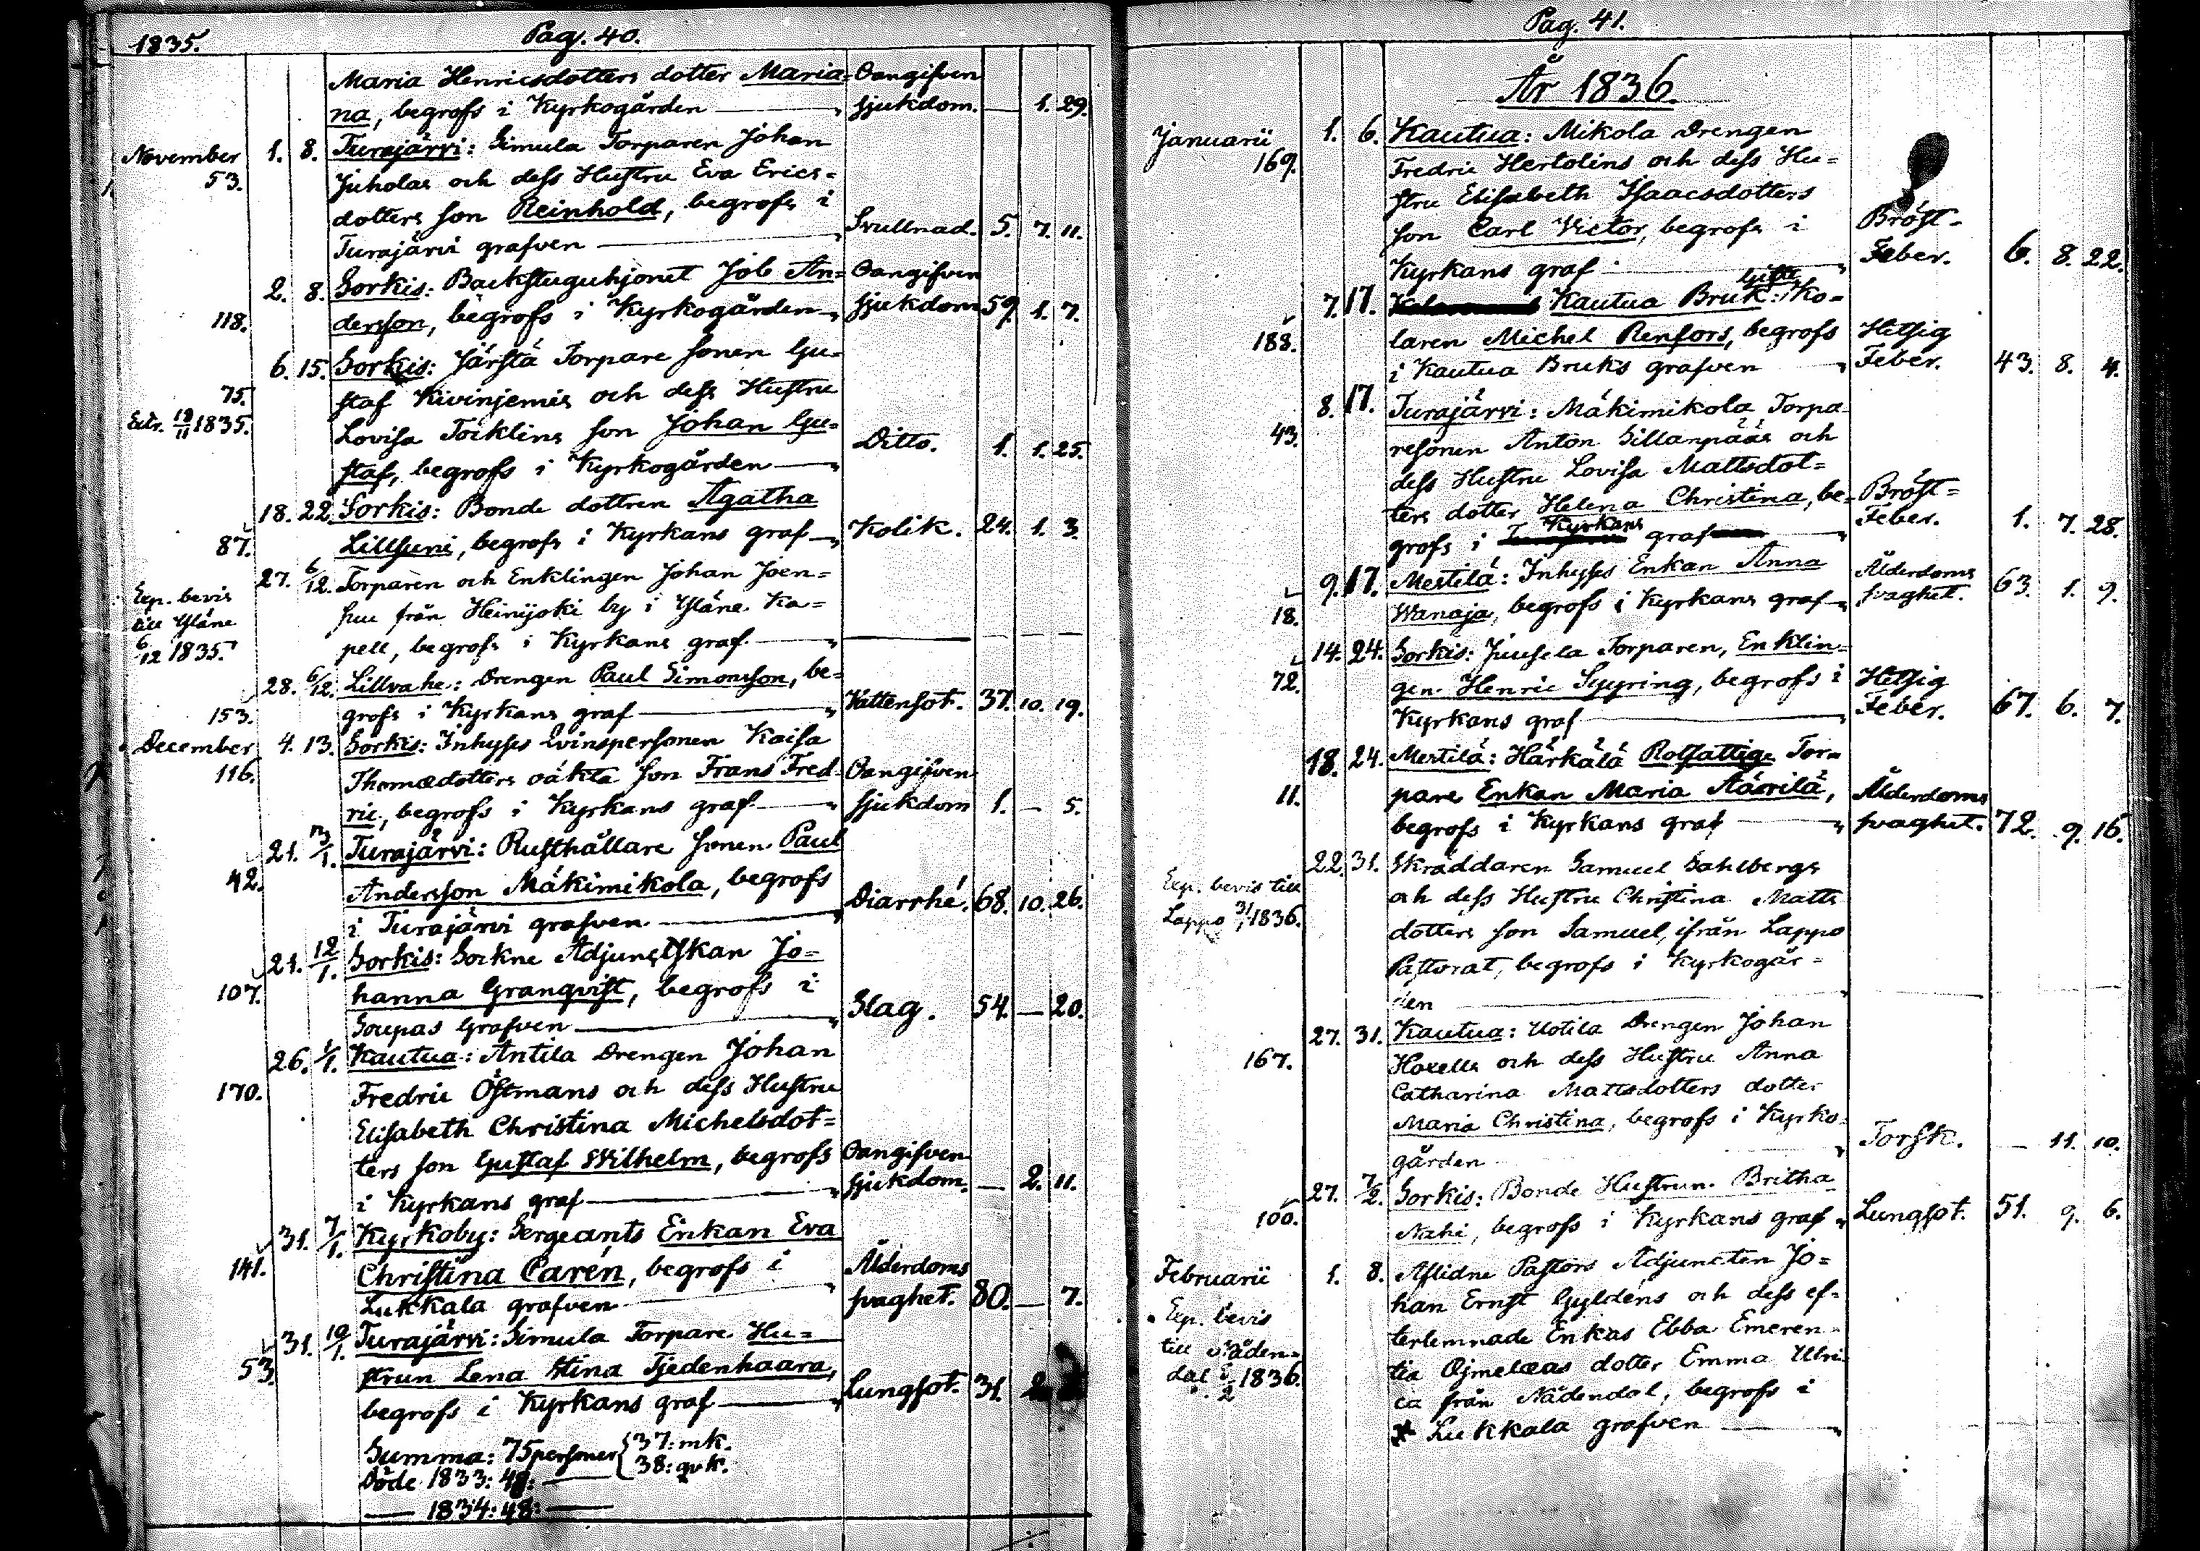 1835.
Pag. 40.
Maria Henricsdotters dotter Maria- Oangifven
na, begrofs i Kyrkogården sjukdom. — 1. 29.
November 1. 8. Turajärvi: Simula Torparen Johan
53. Juholas och dess Hustru Eva Erics-
dotters son Reinhold, begrofs i
Turajärvi grafven Svullnad. 5. 7. 11.
2. 8. Sorkis: Backstuguhjonet Job An- Oangifven
118. dersson, begrofs i Kyrkogården sjukdom 59. 1. 7.
6. 15. Sorkis: Järstä Torpare sonen Gu-
75. staf Kivinjemis och dess Hustru
Extr. 19/11 1835. Lovisa Toiklins son Johan Gu-
staf, begrofs i Kyrkogården Ditto. 1. 1. 25.
18. 22. Sorkis: Bonde dottren Agatha
87. Lillsuni, begrofs i Kyrkans graf Kolik. 24. 1. 3.
27. 6/12. Torparen och Enklingen Johan Joen-
Exp. bevis suu från Heinijoki by i Yläne Ka-
till Yläne pell, begrofs i Kyrkans graf
6/12 1835.
28. 6/12. Lillvahe: Drengen Paul Simonsson, be-
153. grofs i Kyrkans graf Vattensot. 37. 10. 19.
December 4. 13. Sorkis: Inhyses Qvinspersonen Kaisa
116. Thomædotters oäkta son Frans Fred- Oangifven
ric, begrofs i Kyrkans graf sjukdom 1. — 5.
21. 3/1. Turajärvi: Rusthållare sonen Paul
42. Andersson Mäkimikola, begrofs
i Turajärvi grafven Diarrhé. 68. 10. 26.
21. 12/1. Sorkis: Sockne Adjunctskan Jo-
107. hanna Granqvist, begrofs i
Soupas Grafven Slag. 54. — 20.
26. 1/1. Kautua: Antila Drengen Johan
170. Fredric Östmans och dess Hustru
Elisabeth Christina Michelsdot-
ters son Gustaf Wilhelm, begrofs Oangifven
i Kyrkans graf sjukdom. — 2. 11.
31. 7/1. Kyrkoby: Sergeants Enkan Eva
141. Christina Caren, begrofs i Ålderdoms
Lukkala grafven svaghet. 80. — 7.
31. 10/1. Turajärvi: Simula Torpare Hu-
53. strun Lena Stina Tjedenhaara,
begrofs i Kyrkans graf Lungsot. 31. 2.
Summa: 75 personer { 37: mk.
38: qvk.
Döde 1833: 48:
— 1834: 48:
Pag. 41.
År 1836.
Januarii 1. 6. Kautua: Mikola Drengen
169. Fredric Hertolins och dess Hu-
stru Elisabeth Isaacsdotters
son Carl Victor, begrofs i Bröst-
Kyrkans graf Feber. 6. 8. 22.
7. 17. Kautua Bruk: Gifte Ko-
188. laren Michel Renfors, begrofs Hetsig
i Kautua Bruks grafven Feber. 43. 8. 4.
8. 17. Turajärvi: Mäkimikola Torpa-
43. resonen Anton Sillanpääs och
dess Hustru Lovisa Mattsdot-
ters dotter Helena Christina, be- Bröst-
grofs i Kyrkans graf Feber. 1. 7. 28.
9. 17. Mestilä: Inhyses Enkan Anna Ålderdoms
18. Wanaja, begrofs i Kyrkans graf svaghet. 63. 1. 9.
14. 24. Sorkis: Juusela Torparen, Enklin-
72. gen Henric Spyring, begrofs i Hetsig
Kyrkans graf Feber. 67. 6. 7.
18. 24. Mestilä: Härkälä Rotfattige Tor-
11. pare Enkan Maria Äärilä, Ålderdoms
begrofs i Kyrkans graf svaghet. 72. 9. 16.
22. 31. Skräddaren Samuel Sahlbergs
Exp. bevis till och dess Hustru Christina Matts
Lappo 31/1 1836. dotters son Samuel, ifrån Lappo
Pastorat, begrofs i Kyrkogår-
den
27. 31. Kautua: Uotila Drengen Johan
167. Hoxells och dess Hustru Anna
Catharina Mattsdotters dotter
Maria Christina, begrofs i Kyrko-
gården Torsk. — 11. 10.
27. 7/2. Sorkis: Bonde Hustrun Britha
100. Nahi, begrofs i Kyrkans graf Lungsot. 51. 9. 6.
Februarii 1. 8. Aflidne Pastors Adjuncten Jo-
Exp. bevis han Ernst Gyldéns och dess ef-
till Nåden- terlemnade Enkas Ebba Emeren-
dal 1836. tia Öjmelæas dotter Emma Ulri-
ca från Nådendal, begrofs i
Lukkala grafven